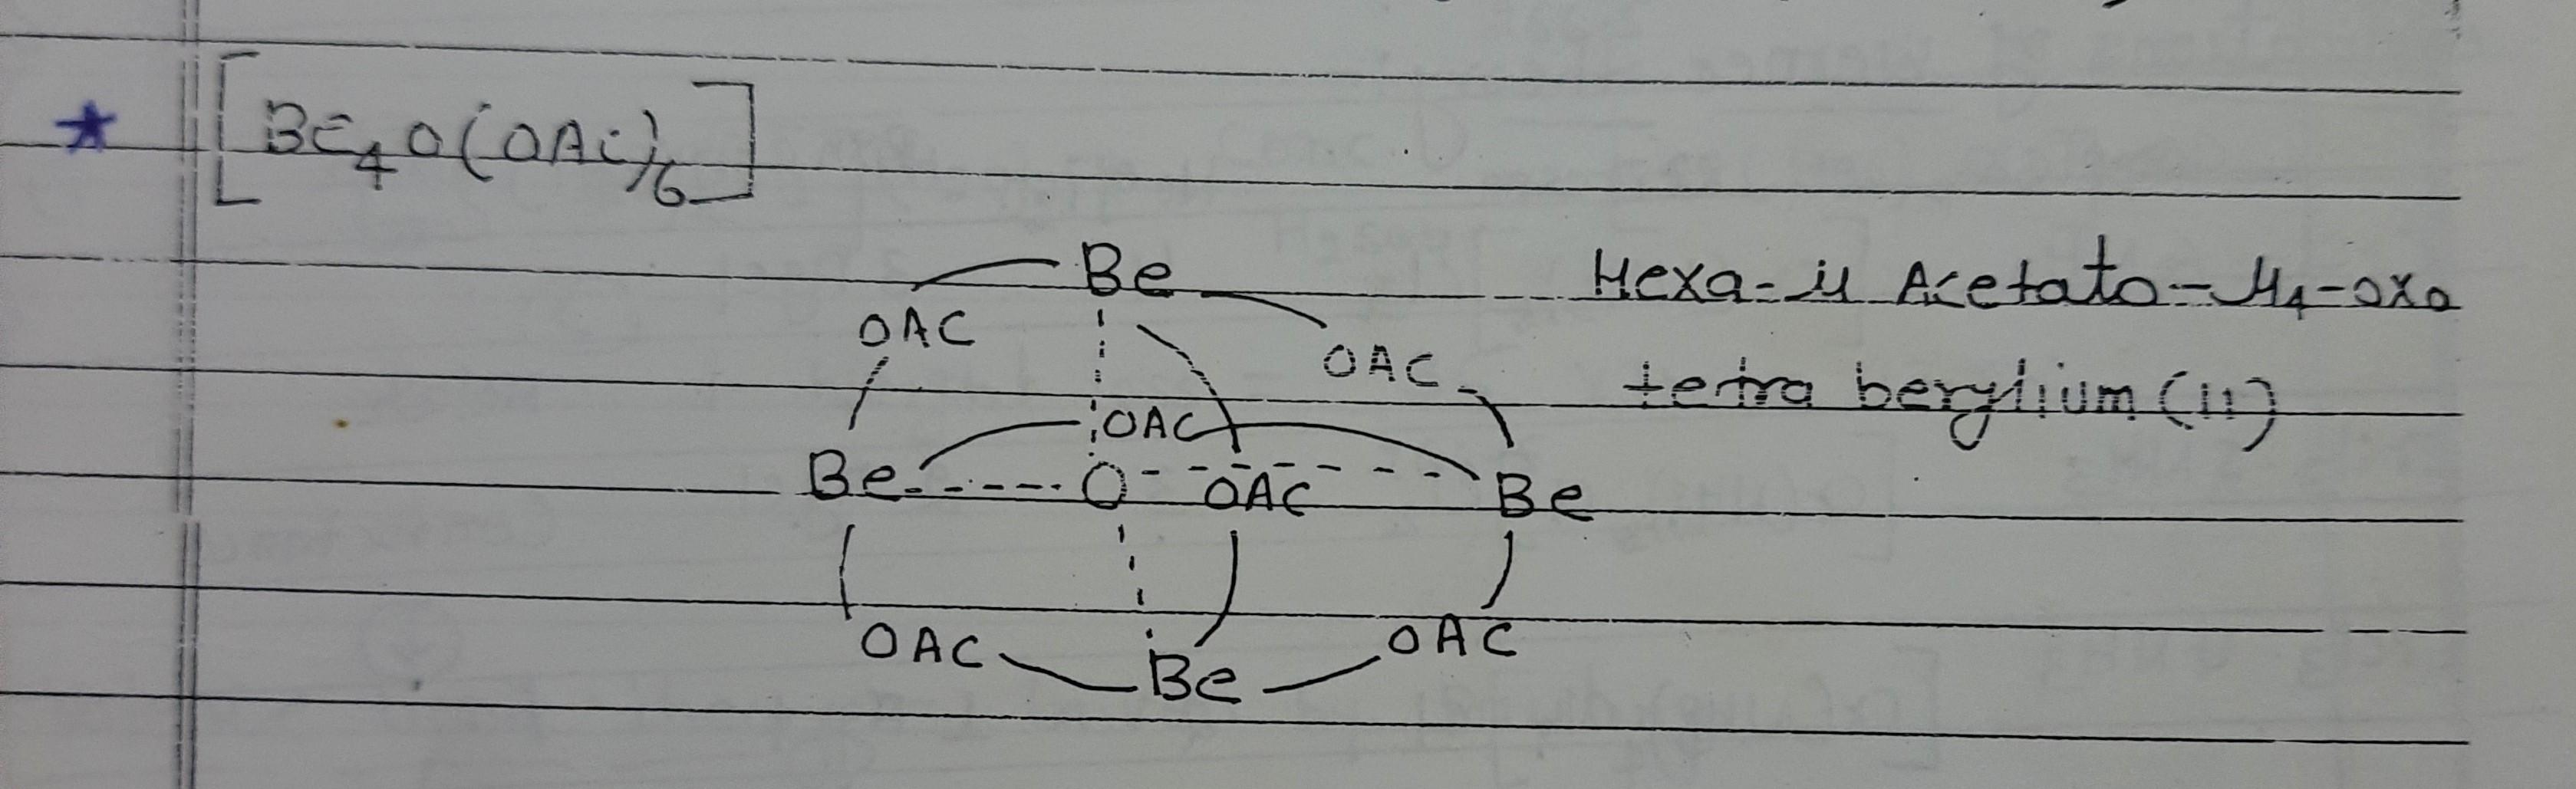 ★ [Be4O(OAc)6]
Be Hexa-μ Acetato-μ4-oxo
OAC OAC tetra berylium (II)
OAC
Be O OAC Be
OAC Be OAC